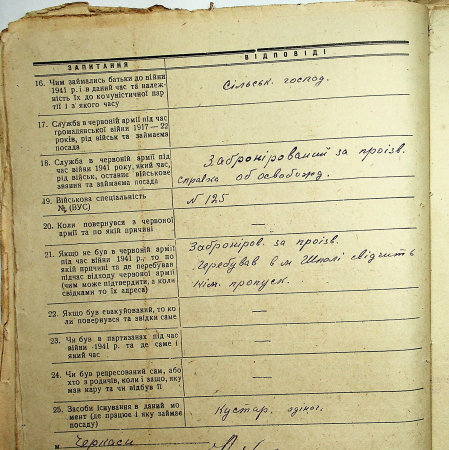 ЗАПИТАННЯ ВІДПОВІДІ
16. Чим займались батьки до війни
1941 р. і в даний час та належ-
ність їх до комуністичної пар-
тії і з якого часу
Сільськ. господ.
17. Служба в червоній армії під час
громадянської війни 1917—22
років, рід військ та займаема
посада
18. Служба в червоній армії під
час війни 1941 року, який час,
рід військ, останнє військове
звання та займаєма посада
Забронірований за произв.
справка об освобожд.
19. Військова спеціальність
№ (ВУС)
N 125
20. Коли повернувся з червоної
армії та по якій причині
—
21. Якщо не був в червоній армії
під час війни 1941 р., то по
якій причині та де перебував
підчас відходу червоної армії
(чим може підтвердити, а коли
свідками то їх адреса)
Заброніров. за произв.
Перебував в м Шполі свідчить
нім. пропуск.
22. Якщо був евакуйований, то ко-
ли повернувся та звідки саме
—
23. Чи був в партизанах під час
війни 1941 р. та де саме і
який час
—
24. Чи був репресований сам, або
хто з родичів, коли і защо, яку
мав кару та чи відбув її
—
25. Засоби існування в даний мо-
мент (де працює і яку займає
посаду)
Кустар. одіноч.
м. Черкаси